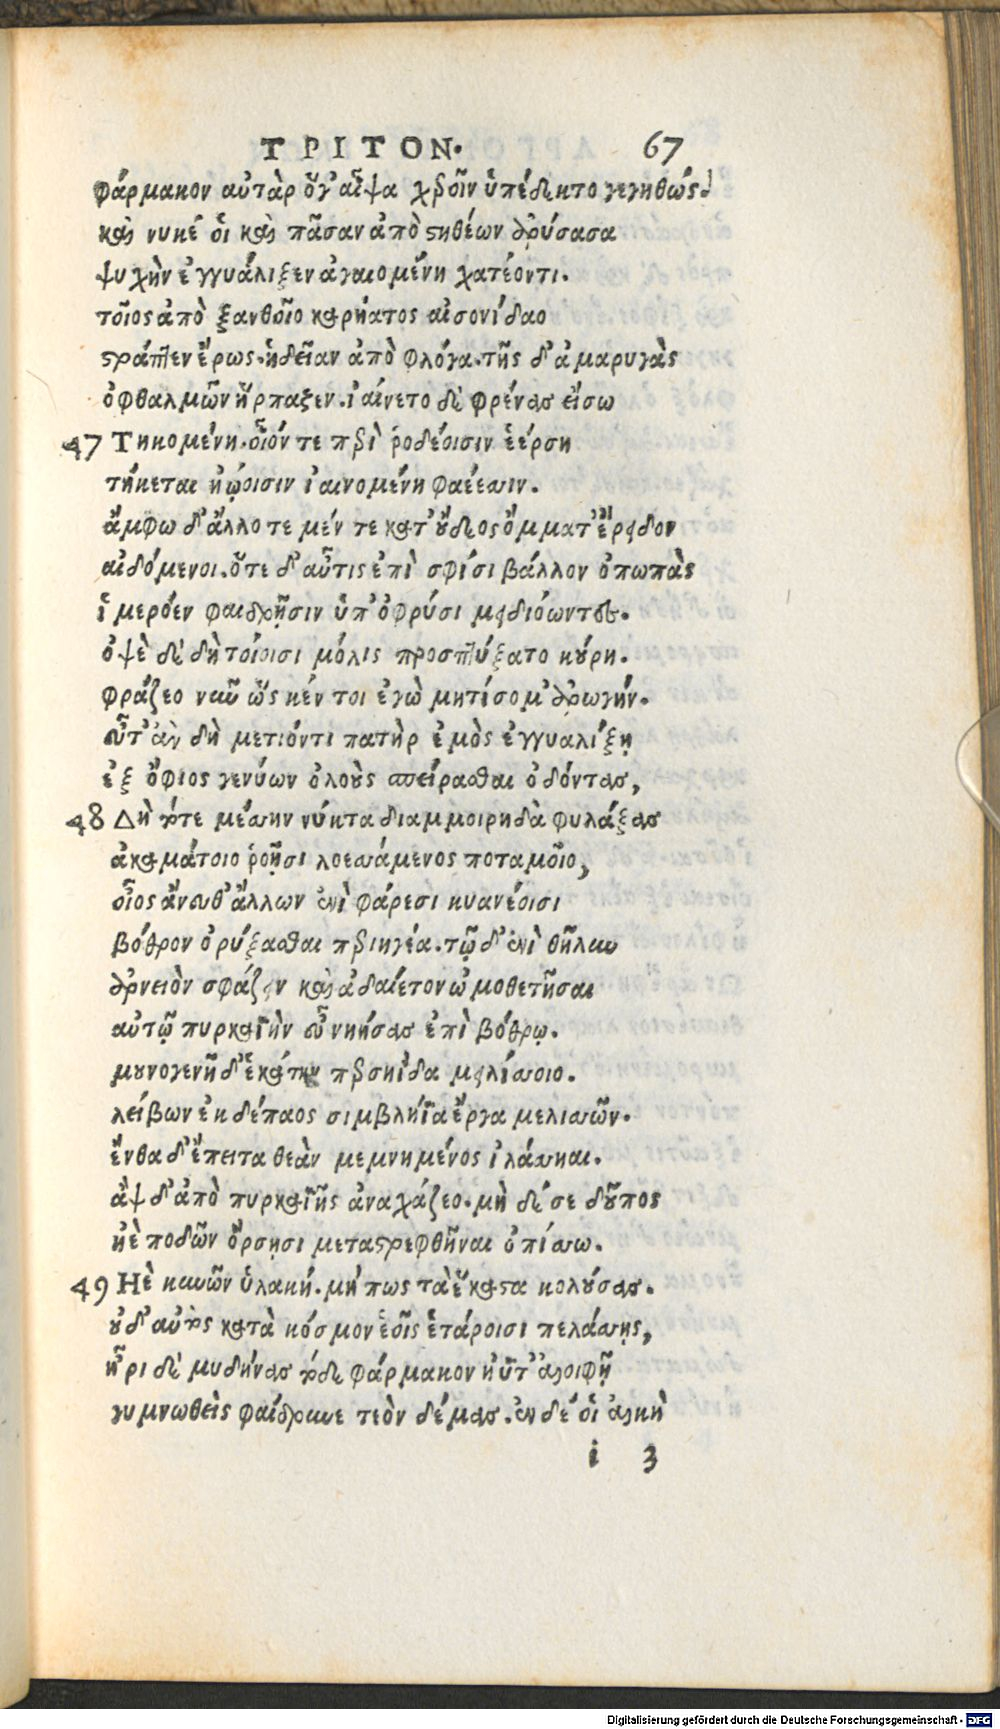 ΤΡΙΤΟΝ. 67
φάρμακον αὐτὰρ ὅγ' αἶψα χεροῖν ὑπέδεκτο γεγηθώς.
καὶ νυκέ οἱ καὶ πᾶσαν ἀπὸ στηθέων ἀρύσασα
ψυχὴν ἐγγυάλιξεν ἀγαιομένη χατέοντι.
τοῖος ἀπὸ ξανθοῖο καρήατος αἰσονίδαο
στράπτεν ἔρως. ἡδεῖαν ἀπὸ φλόγα. τῆς δ' ἀμαρυγὰς
ὀφθαλμῶν ἥρπαξεν. ἰαίνετο δὲ φρένας εἴσω
47 Τηκομένη. οἷόν τε περὶ ῥοδέοισιν ἐέρση
τήκεται ἠῴοισιν ἰαινομένη φαέεσσιν.
ἄμφω δ' ἄλλοτε μέν τε κατ' οὔδεος ὄμματ' ἔρειδον
αἰδόμενοι. ὅτε δ' αὖτις ἐπὶ σφίσι βάλλον ὀπωπὰς
ἱμερόεν φαιδρῇσιν ὑπ' ὀφρύσι μειδιόωντες.
ὀψὲ δὲ δὴ τοίοισι μόλις προσπτύξατο κούρη.
φράζεο νῦν ὥς κέν τοι ἐγὼ μητίσομ' ἀρωγήν.
εὖτ' ἂν δὴ μετιόντι πατὴρ ἐμὸς ἐγγυαλίξῃ
ἐξ ὄφιος γενύων ὀλοοὺς σπείρασθαι ὀδόντας,
48 Δὴ τότε μέσσην νύκτα διαμμοιρηδὰ φυλάξας
ἀκαμάτοιο ῥοῇσι λοεσσάμενος ποταμοῖο,
οἶος ἄνευθ' ἄλλων ἐνὶ φάρεσι κυανέοισι
βόθρον ὀρύξασθαι περιηγέα. τῷ δ' ἐνὶ θῆλυν
ἀρνειὸν σφάζειν καὶ ἀδαίετον ὠμοθετῆσαι
αὐτῷ πυρκαϊὴν εὖ νηήσας ἐπὶ βόθρῳ.
μουνογενῆ δ' ἑκάτην περσηΐδα μειλίσσοιο.
λείβων ἐκ δέπαος σιμβλήϊα ἔργα μελισσῶν.
ἔνθα δ' ἔπειτα θεὰν μεμνημένος ἱλάσσηαι.
ἂψ δ' ἀπὸ πυρκαϊῆς ἀναχάζεο. μὴ δέ σε δοῦπος
ἠὲ ποδῶν ὄρσῃσι μεταστρεφθῆναι ὀπίσσω.
49 Ηὲ κυνῶν ὑλακή. μή πως τὰ ἕκαστα κολούσας.
οὐδ' αὐτὸς κατὰ κόσμον ἑοῖς ἑτάροισι πελάσσῃς,
ἦρι δὲ μυδήνας τόδε φάρμακον ἠΰτ' ἀλοιφῇ
γυμνωθεὶς φαίδρυνε τεὸν δέμας. ἐν δέ οἱ ἀλκὴ
i 3
Digitalisierung gefördert durch die Deutsche Forschungsgemeinschaft - DFG